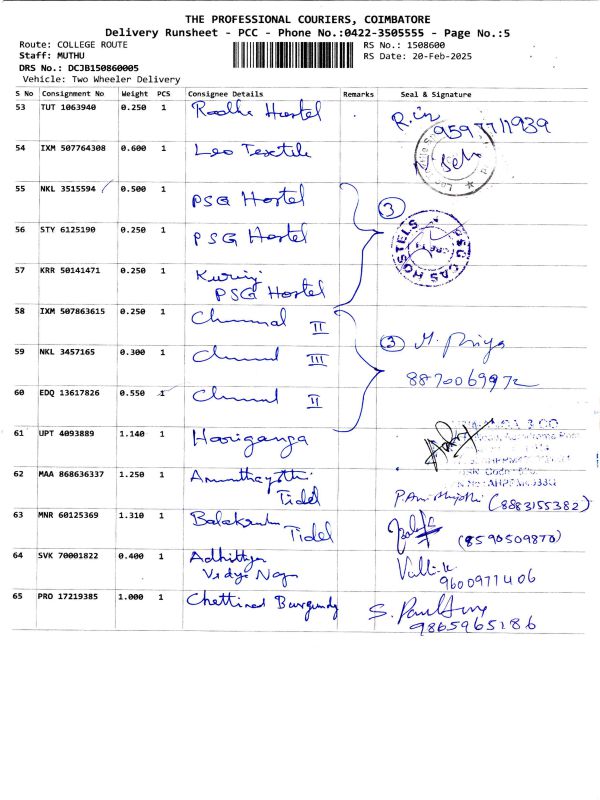 THE PROFESSIONAL COURIERS, COIMBATORE
Delivery Runsheet - PCC - Phone No.:0422-3505555 - Page No.:5
Route: COLLEGE ROUTE
RS No.: 1508600
Staff: MUTHU
RS Date: 20-Feb-2025
DRS No.: DCJB150860005
Vehicle: Two Wheeler Delivery
S No Consignment No Weight PCS Consignee Details Remarks Seal & Signature
53 TUT 1063940 0.250 1 Hostel
9597711939
54 IXM 507764308 0.600 1 Leo Textile
55 NKL 3515594 0.500 1 PSG Hostel
3
56 STY 6125190 0.250 1 PSG Hostel
PSG CAS HOSTELS
57 KRR 50141471 0.250 1
PSG Hostel
58 IXM 507863615 0.250 1 II
59 NKL 3457165 0.300 1 III
3 M. Priya
8870069972
60 EDQ 13617826 0.550 1 II
61 UPT 4093889 1.140 1 Hariganga
62 MAA 868636337 1.250 1
Tidel
(8883155382)
63 MNR 60125369 1.310 1
Tidel
(8590509870)
64 SVK 70001822 0.400 1 Adhithya
Vidya Nag
9600977406
65 PRO 17219385 1.000 1 Chettinad Burgundy
9865965286